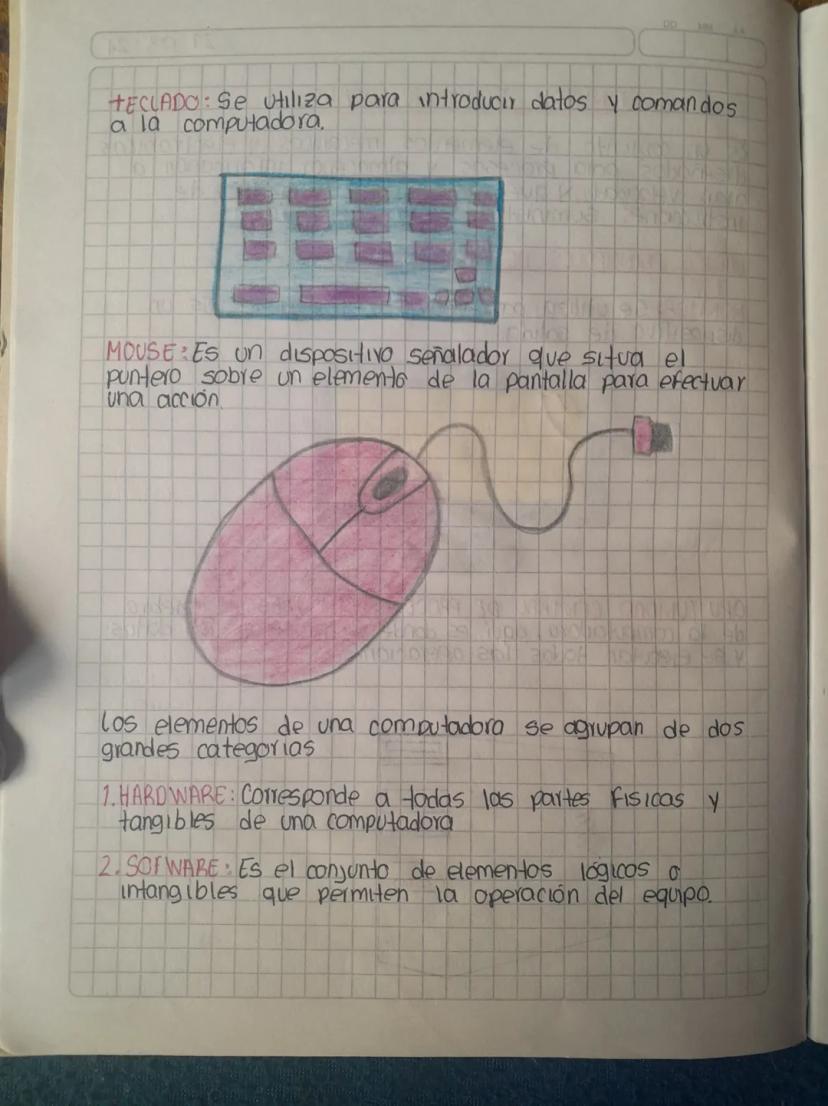 TECLADO: Se utiliza para introducir datos y comandos
a la computadora.
MOUSE: Es un dispositivo señalador que situa el
puntero sobre un elemento de la pantalla para efectuar
una acción.
Los elementos de una computadora se agrupan de dos
grandes categorias
1. HARDWARE: Corresponde a todas las partes fisicas y
tangibles de una computadora
2. SOFWARE: Es el conjunto de elementos lógicos o
intangibles que permiten la operación del equipo.